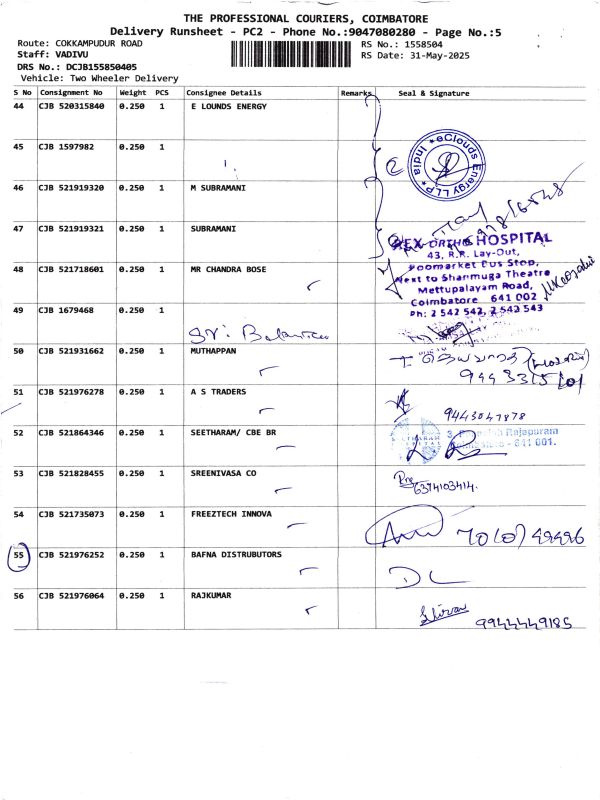 THE PROFESSIONAL COURIERS, COIMBATORE
Delivery Runsheet - PC2 - Phone No.:9047080280 - Page No.:5
Route: COKKAMPUDUR ROAD
RS No.: 1558504
Staff: VADIVU
RS Date: 31-May-2025
DRS No.: DCJB155850405
Vehicle: Two Wheeler Delivery
S No Consignment No Weight PCS Consignee Details Remarks Seal & Signature
44 CJB 520315840 0.250 1 E LOUNDS ENERGY
45 CJB 1597982 0.250 1
eClouds Energy LLP
India
46 CJB 521919320 0.250 1 M SUBRAMANI
47 CJB 521919321 0.250 1 SUBRAMANI
REX ORTHO HOSPITAL
43, R.R. Lay-Out,
Poomarket Bus Stop,
Next to Shanmuga Theatre
Mettupalayam Road,
Coimbatore 641 002
Ph: 2 542 542, 2 542 543
48 CJB 521718601 0.250 1 MR CHANDRA BOSE
49 CJB 1679468 0.250 1
50 CJB 521931662 0.250 1 MUTHAPPAN
51 CJB 521976278 0.250 1 A S TRADERS
9443047878
52 CJB 521864346 0.250 1 SEETHARAM/ CBE BR
Rajapuram
641 001.
53 CJB 521828455 0.250 1 SREENIVASA CO
6374103414.
54 CJB 521735073 0.250 1 FREEZTECH INNOVA
55 CJB 521976252 0.250 1 BAFNA DISTRUBUTORS
DC
56 CJB 521976064 0.250 1 RAJKUMAR
9944449185